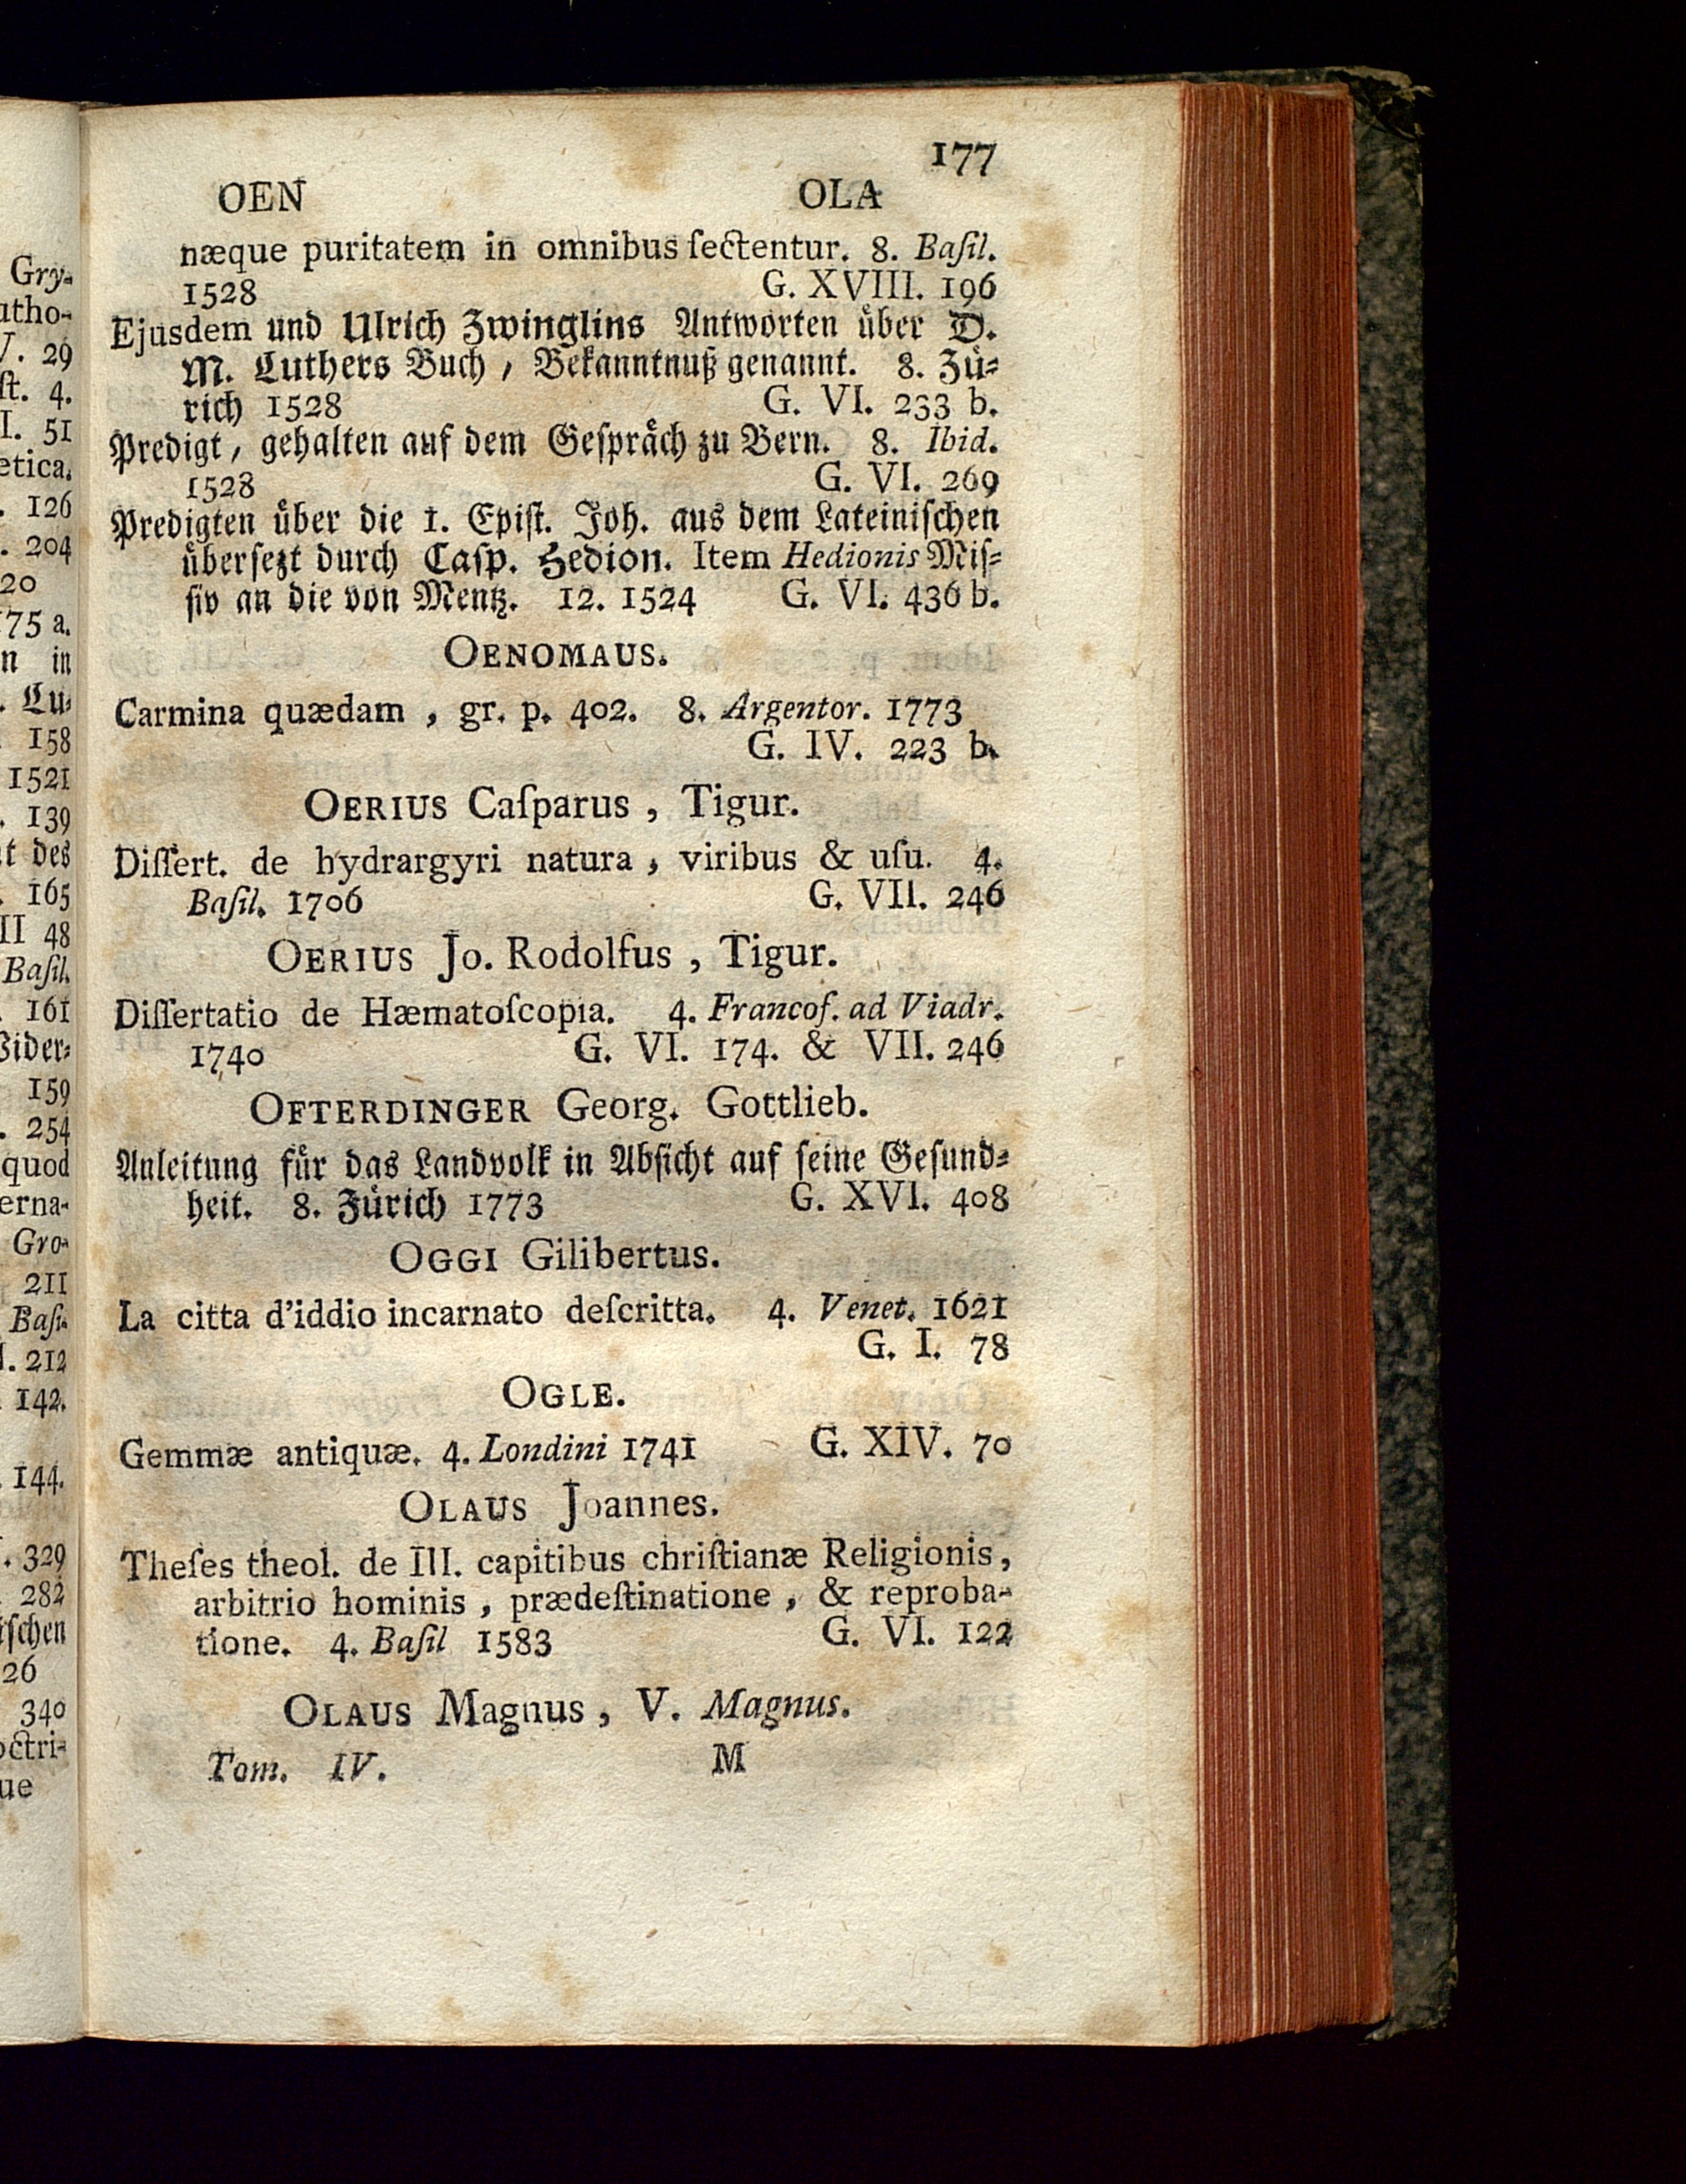 177
OEN OLA
næque puritatem in omnibus ſectentur. 8. Baſil.
1528 G. XVIII. 196
Ejusdem und Ulrich Zwinglins Antworten über D.
M. Luthers Buch, Bekanntnuß genannt. 8. Zü-
rich 1528 G. VI. 233 b.
Predigt, gehalten auf dem Geſpräch zu Bern. 8. Ibid.
1528 G. VI. 269
Predigten über die 1. Epiſt. Joh. aus dem Lateiniſchen
überſezt durch Caſp. Hedion. Item Hedionis Miſ-
ſiv an die von Mentz. 12. 1524 G. VI. 436 b.
OENOMAUS.
Carmina quædam, gr. p. 402. 8. Argentor. 1773
G. IV. 223 b.
OERIUS Caſparus, Tigur.
Diſſert. de hydrargyri natura, viribus & uſu. 4.
Baſil. 1706 G. VII. 246
OERIUS Jo. Rodolfus, Tigur.
Diſſertatio de Hæmatoſcopia. 4. Francof. ad Viadr.
1740 G. VI. 174. & VII. 246
OFTERDINGER Georg. Gottlieb.
Anleitung für das Landvolk in Abſicht auf ſeine Geſund-
heit. 8. Zürich 1773 G. XVI. 408
OGGI Gilibertus.
La citta d'iddio incarnato deſcritta. 4. Venet. 1621
G. I. 78
OGLE.
Gemmæ antiquæ. 4. Londini 1741 G. XIV. 70
OLAUS Joannes.
Theſes theol. de III. capitibus chriſtianæ Religionis,
arbitrio hominis, prædeſtinatione, & reproba-
tione. 4. Baſil 1583 G. VI. 122
OLAUS Magnus, V. Magnus.
Tom. IV. M